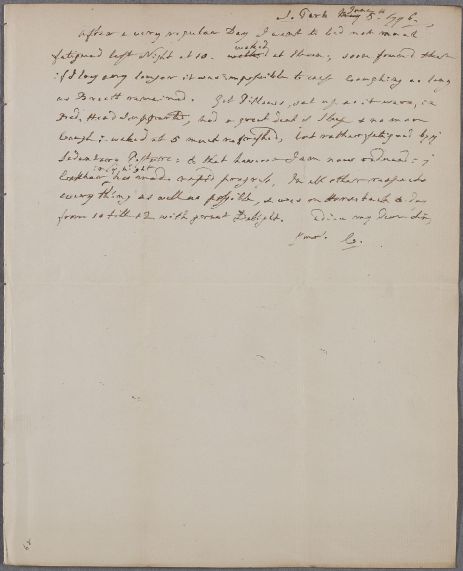 J. Park June 5. 1796.
After a very regular Day I went to bed not much
fatigued last Night at 10. waked at Eleven, soon found that
if I lay any longer it was impossible to cease Coughing as long
as Breath remained. Got Pillows, sat up as it were, in
Bed, Head supported, had a great deal of Sleep & no more
Cough: waked at 5 much refreshed, but rather fatigued by
Sedentary Posture: & that however I am now
in my night has made rapid progress. In all other respects
every thing as well as possible, & was on Horseback to day
from 10 till 12 with great Delight. Adieu my dear Sir,
Yours. C.